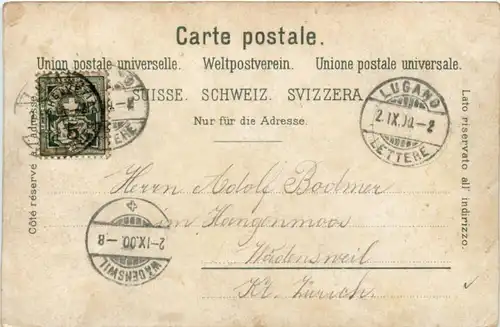 Carte postale.
Union postale universelle. Weltpostverein. Unione postale universale.
SUISSE. SCHWEIZ. SVIZZERA.
Nur für die Adresse.
Côté réservé à l'adresse.
Lato riservato all' indirizzo.
LUGANO
2.IX.00.-2
LETTERE
5
Herrn Adolf Bodmer
im Hangenmoos
Wädensweil
Kt. Zürich.
2-IX.00.-8
WÆDENSWIL